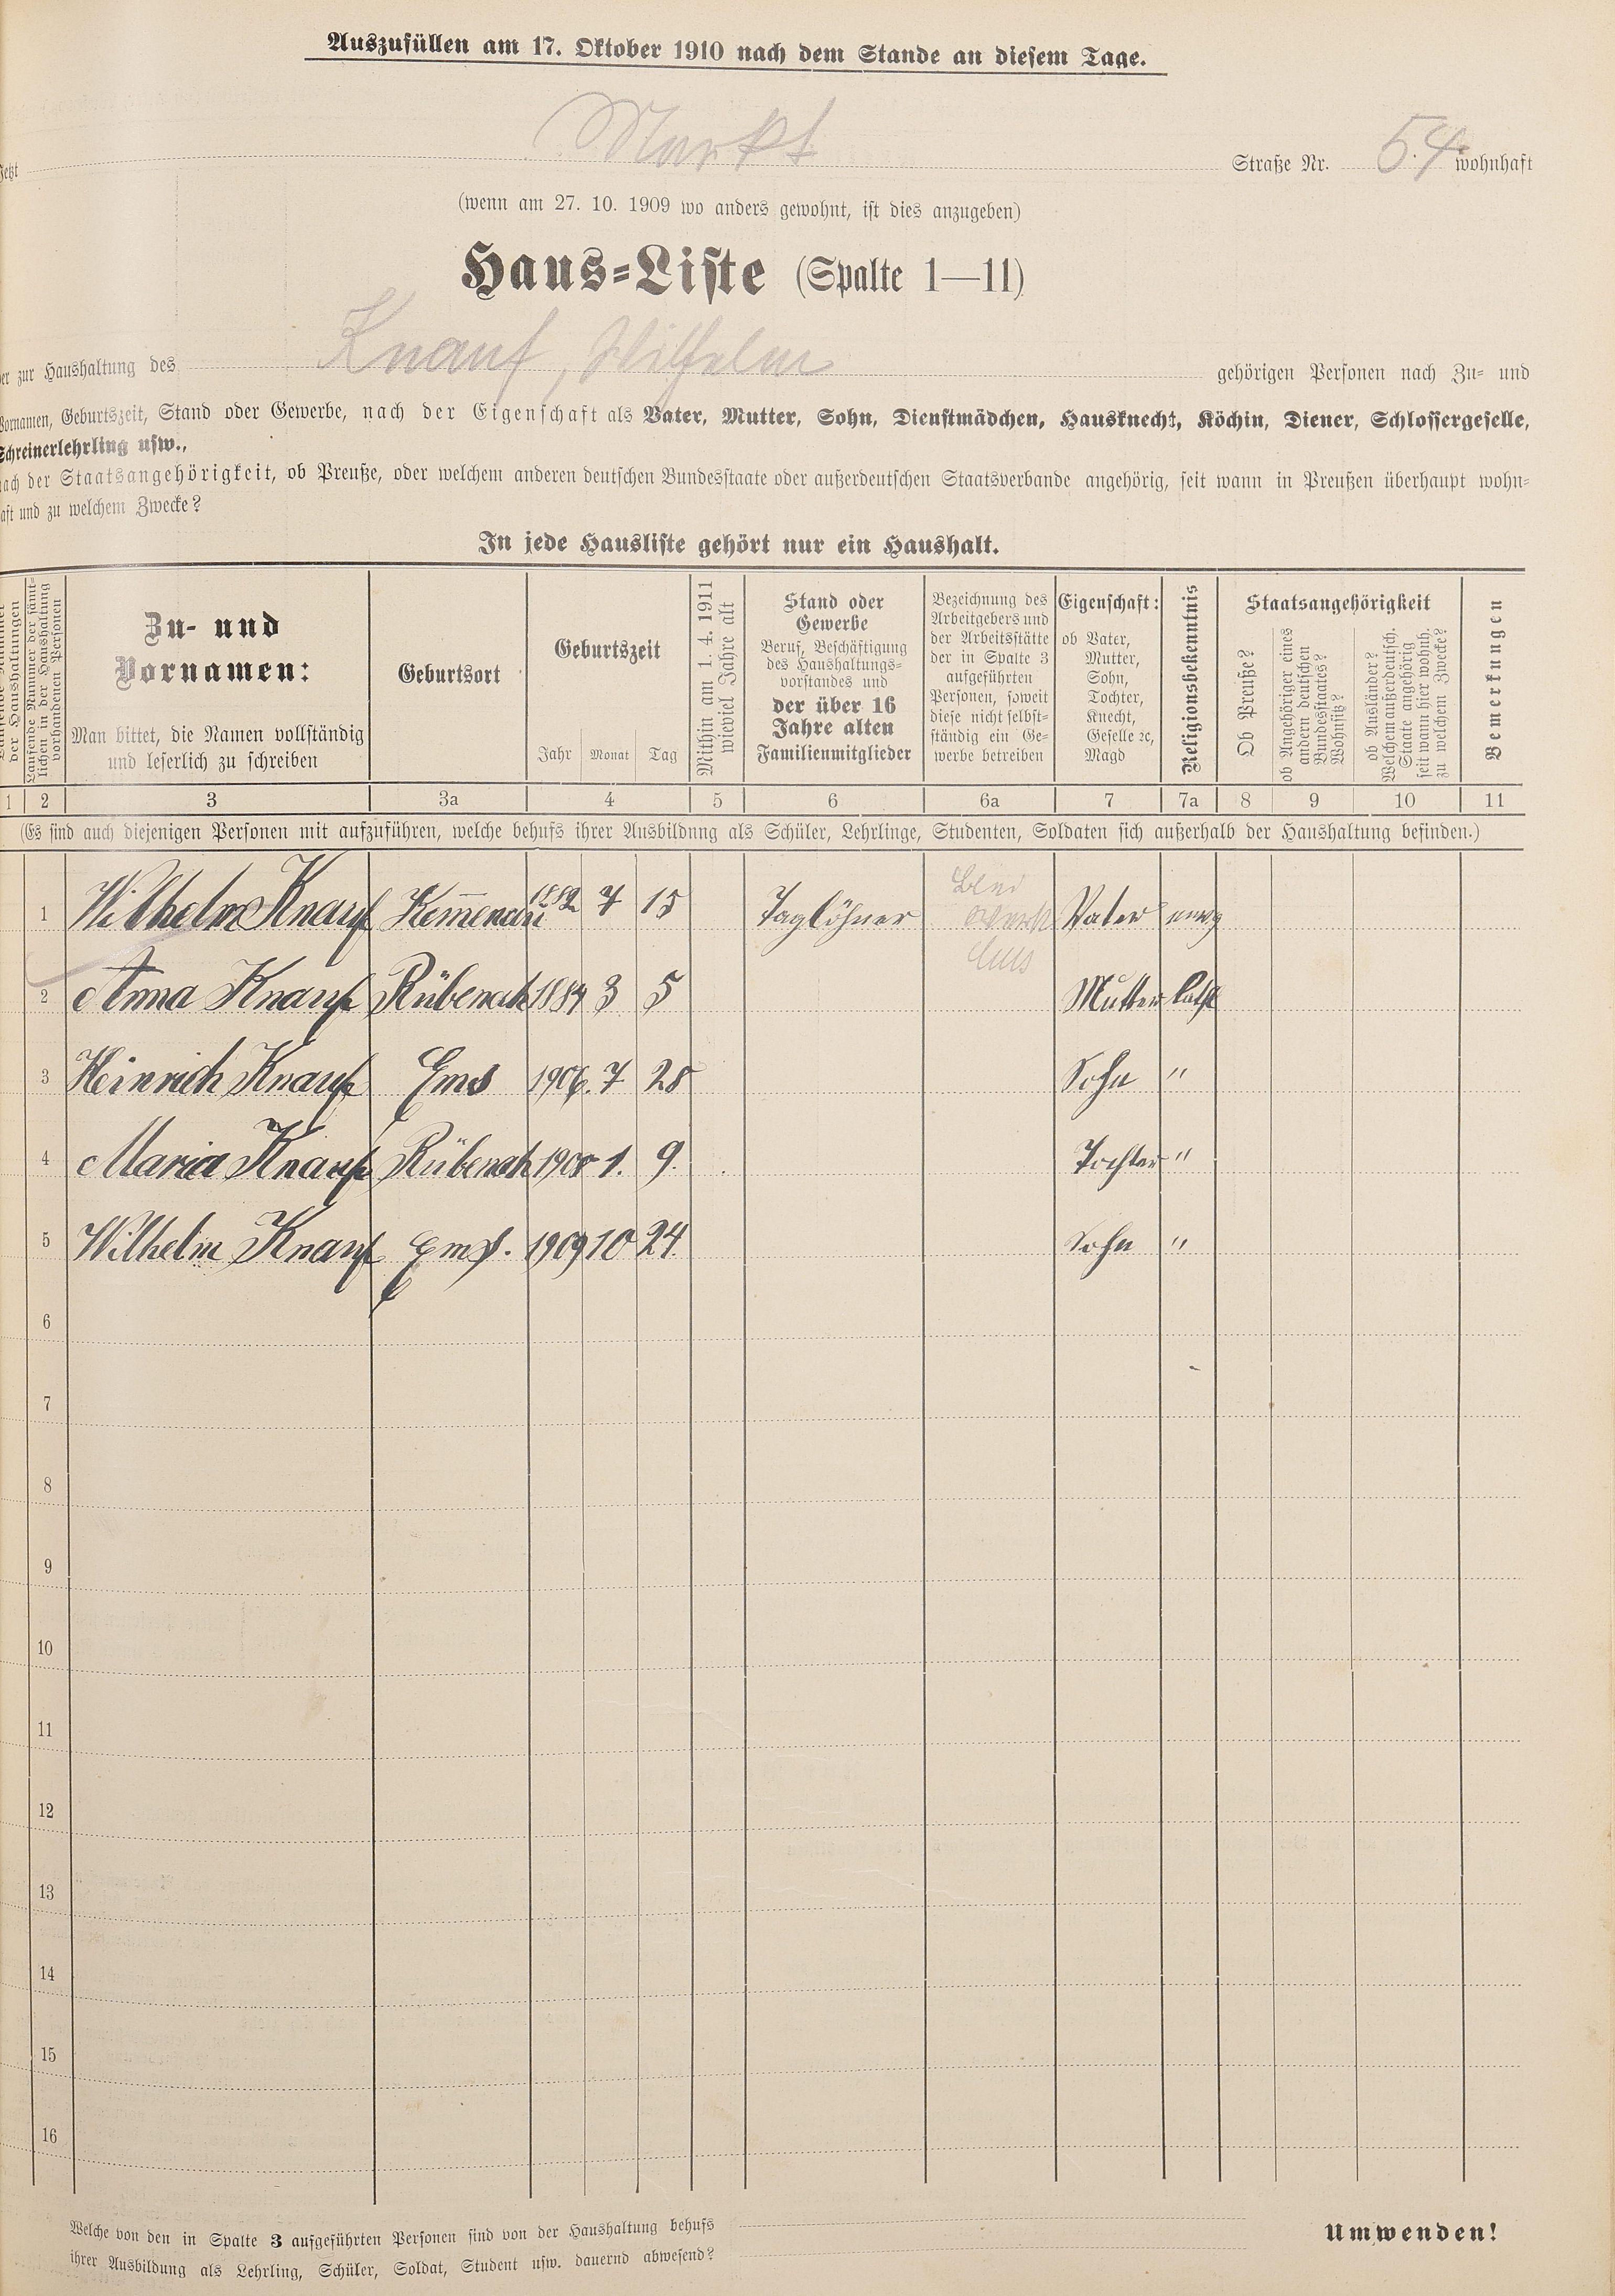 Auszufüllen am 17. Oktober 1910 nach dem Stande an diesem Tage.
Jetzt Markt Straße Nr. 54 wohnhaft
(wenn am 27. 10. 1909 wo anders gewohnt, ist dies anzugeben)
Haus-Liste (Spalte 1—11)
der zur Haushaltung des Knauf, Wilhelm gehörigen Personen nach Zu- und
Vornamen, Geburtszeit, Stand oder Gewerbe, nach der Eigenschaft als Vater, Mutter, Sohn, Dienstmädchen, Hausknecht, Köchin, Diener, Schlossergeselle,
Schreinerlehrling usw.,
nach der Staatsangehörigkeit, ob Preuße, oder welchem anderen deutschen Bundesstaate oder außerdeutschen Staatsverbande angehörig, seit wann in Preußen überhaupt wohn-
haft und zu welchem Zwecke?
In jede Hausliste gehört nur ein Haushalt.
Laufende Nummer
der Haushaltungen
Laufende Nummer der sämt-
lichen in der Haushaltung
vorhandenen Personen
Zu- und
Vornamen:
Man bittet, die Namen vollständig
und leserlich zu schreiben
Geburtsort
Geburtszeit
Jahr Monat Tag
Mithin am 1. 4. 1911
wieviel Jahre alt
Stand oder
Gewerbe
Beruf, Beschäftigung
des Haushaltungs-
vorstandes und
der über 16
Jahre alten
Familienmitglieder
Bezeichnung des
Arbeitgebers und
der Arbeitsstätte
der in Spalte 3
aufgeführten
Personen, soweit
diese nicht selbst-
ständig ein Ge-
werbe betreiben
Eigenschaft:
ob Vater,
Mutter,
Sohn,
Tochter,
Knecht,
Geselle ꝛc,
Magd
Religionsbekenntnis
Staatsangehörigkeit
Ob Preuße?
ob Angehöriger eines
andern deutschen
Bundesstaates?
Wohnsitz?
ob Ausländer?
Welchem außerdeutsch.
Staate angehörig
seit wann hier wohnh.
zu welchem Zwecke?
Bemerkungen
1 2 3 3a 4 5 6 6a 7 7a 8 9 10 11
(Es sind auch diejenigen Personen mit aufzuführen, welche behufs ihrer Ausbildung als Schüler, Lehrlinge, Studenten, Soldaten sich außerhalb der Haushaltung befinden.)
1 Wilhelm Knauf Kemmenau 1882 7 15 Taglöhner Blei werk Ems Vater evng
2 Anna Knauf Rübenach 1884 3 5 Mutter kath
3 Heinrich Knauf Ems 1906. 7 28 Sohn "
4 Maria Knauf Rübenach 1908 1. 9. Tochter "
5 Wilhelm Knauf Ems. 1909 10 24. Sohn "
6
7
8
9
10
11
12
13
14
15
16
Welche von den in Spalte 3 aufgeführten Personen sind von der Haushaltung behufs
ihrer Ausbildung als Lehrling, Schüler, Soldat, Student usw. dauernd abwesend?
Umwenden!